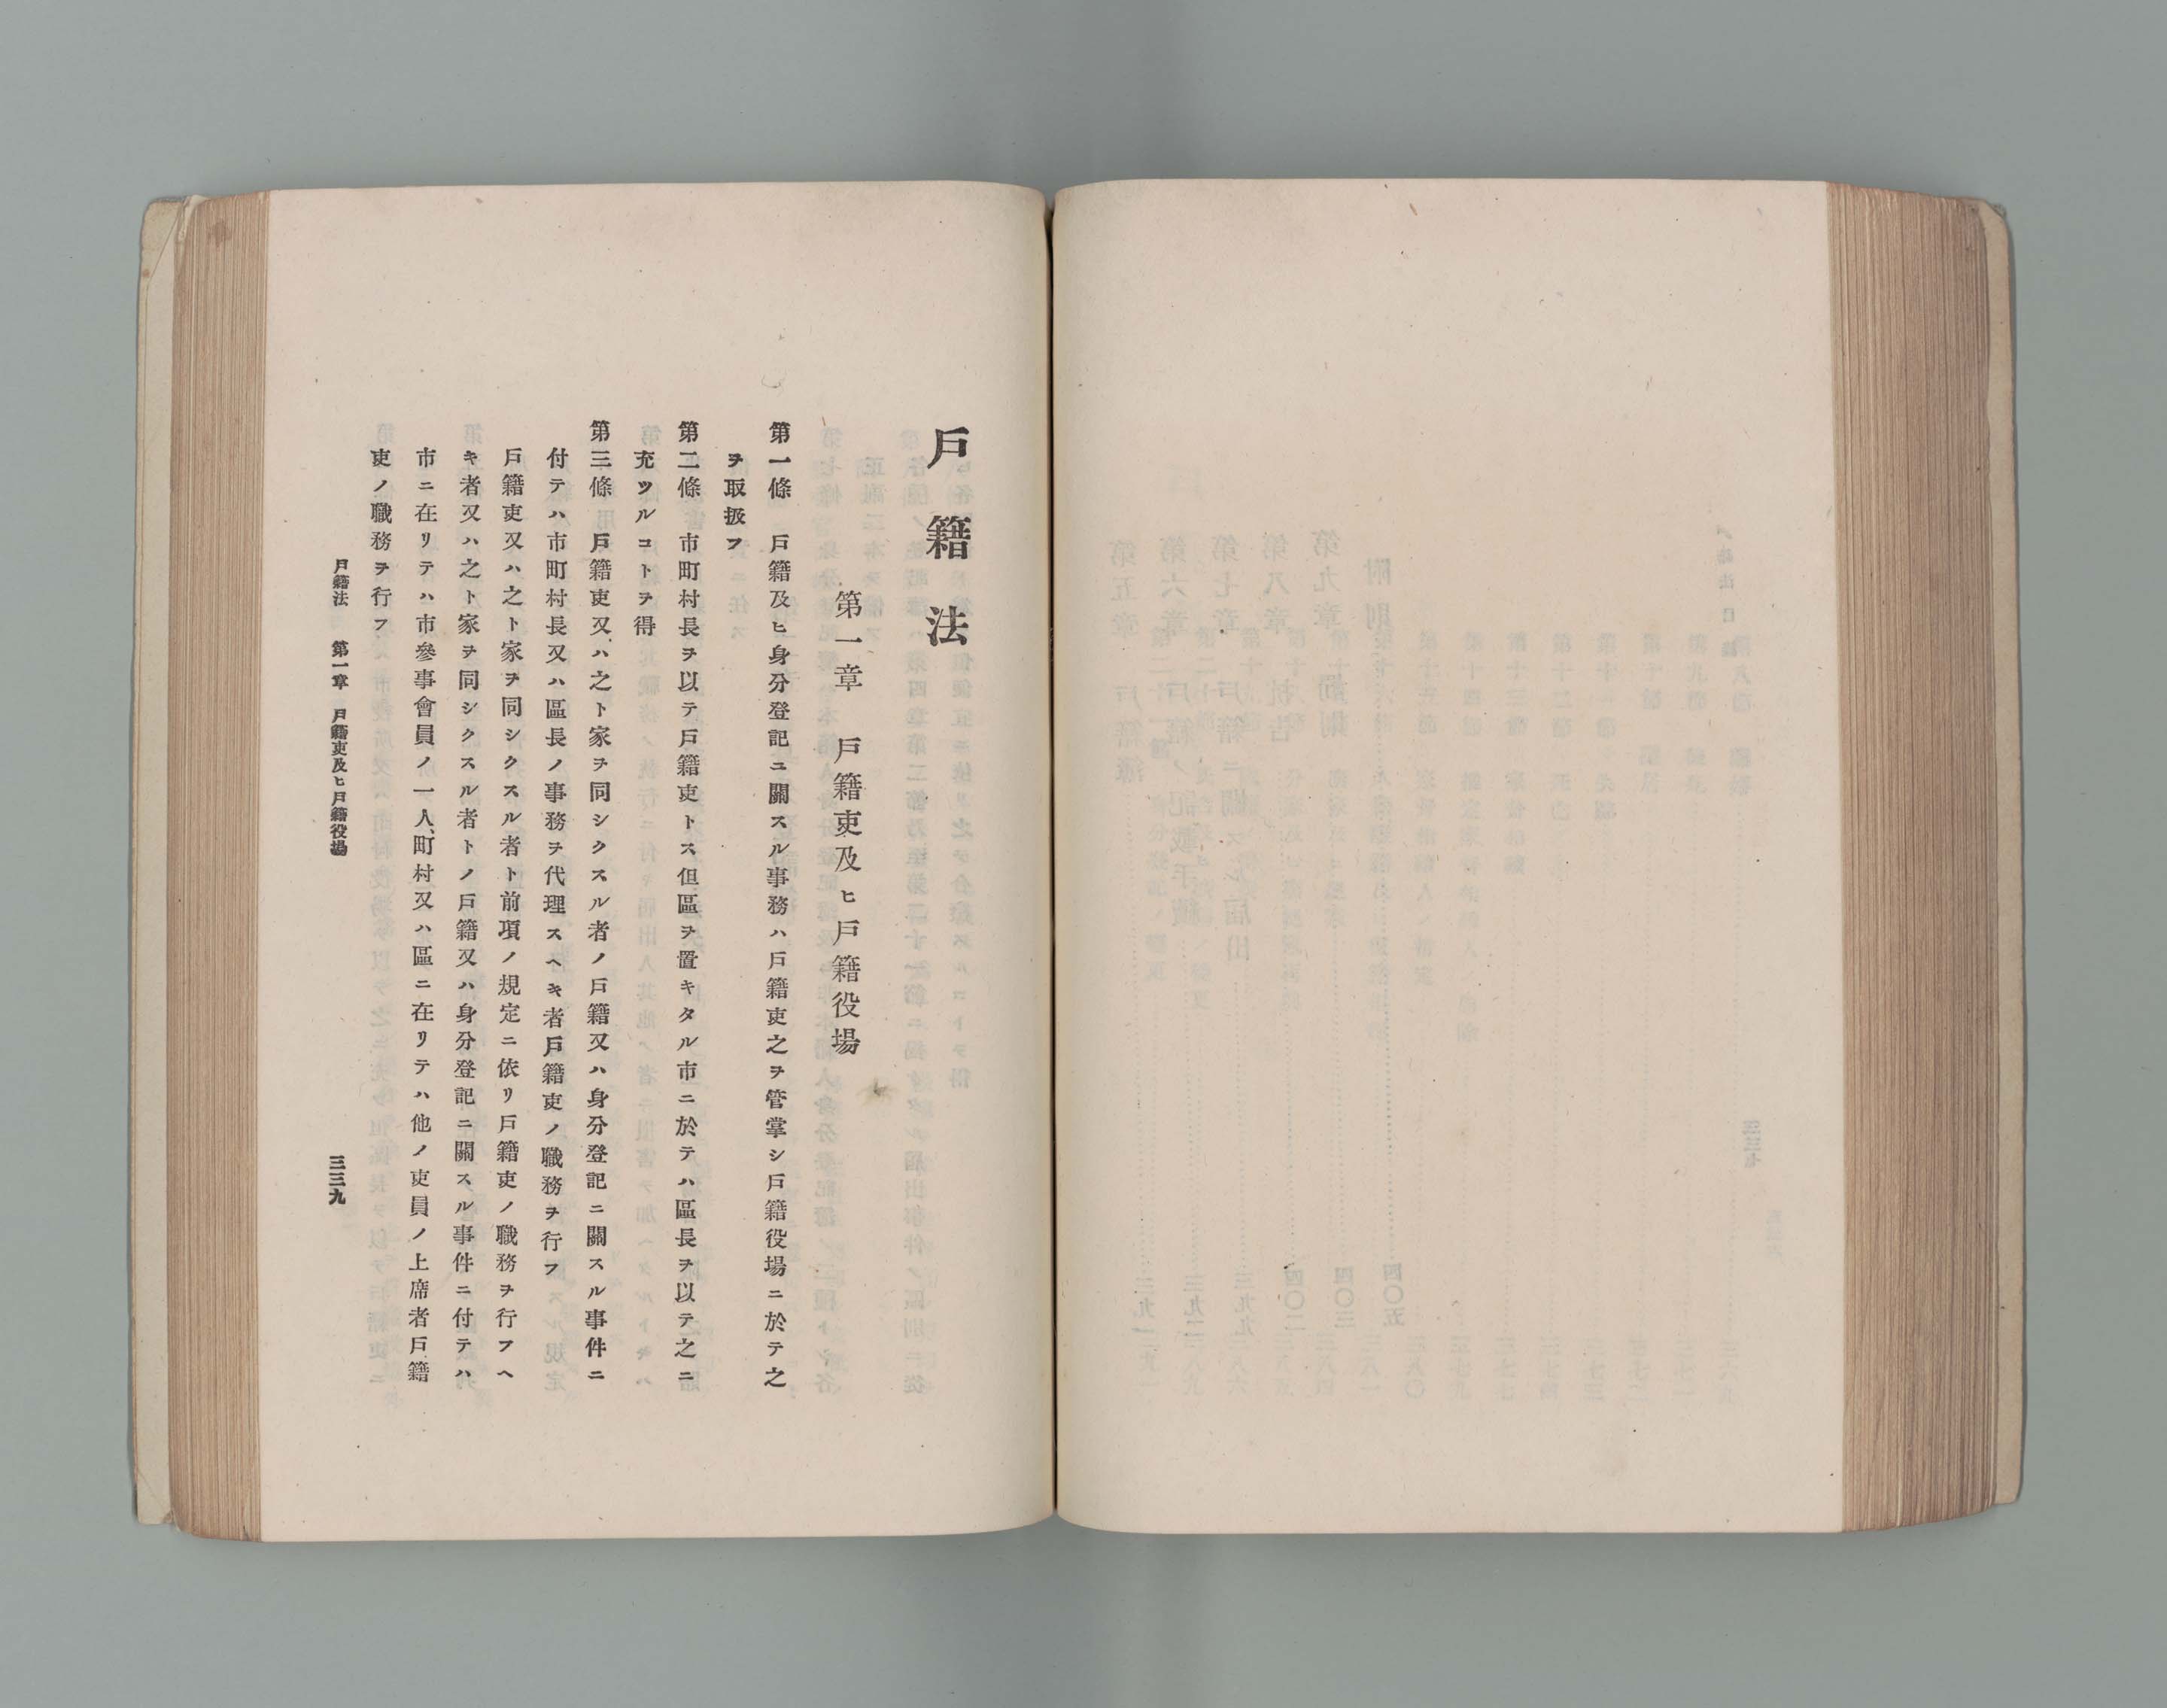 戶籍法
第一章　戶籍吏及ヒ戶籍役場
第一條　戶籍及ヒ身分登記ニ關スル事務ハ戶籍吏之ヲ管掌シ戶籍役場ニ於テ之
ヲ取扱フ
第二條　市町村長ヲ以テ戶籍吏トス但區ヲ置キタル市ニ於テハ區長ヲ以テ之ニ
充ツルコトヲ得
第三條　戶籍吏又ハ之ト家ヲ同シクスル者ノ戶籍又ハ身分登記ニ關スル事件ニ
付テハ市町村長又ハ區長ノ事務ヲ代理スヘキ者戶籍吏ノ職務ヲ行フ
戶籍吏又ハ之ト家ヲ同シクスル者ト前項ノ規定ニ依リ戶籍吏ノ職務ヲ行フヘ
キ者又ハ之ト家ヲ同シクスル者トノ戶籍又ハ身分登記ニ關スル事件ニ付テハ
市ニ在リテハ市參事會員ノ一人、町村又ハ區ニ在リテハ他ノ吏員ノ上席者戶籍
吏ノ職務ヲ行フ
戶籍法　第一章　戶籍吏及ヒ戶籍役場　三三九